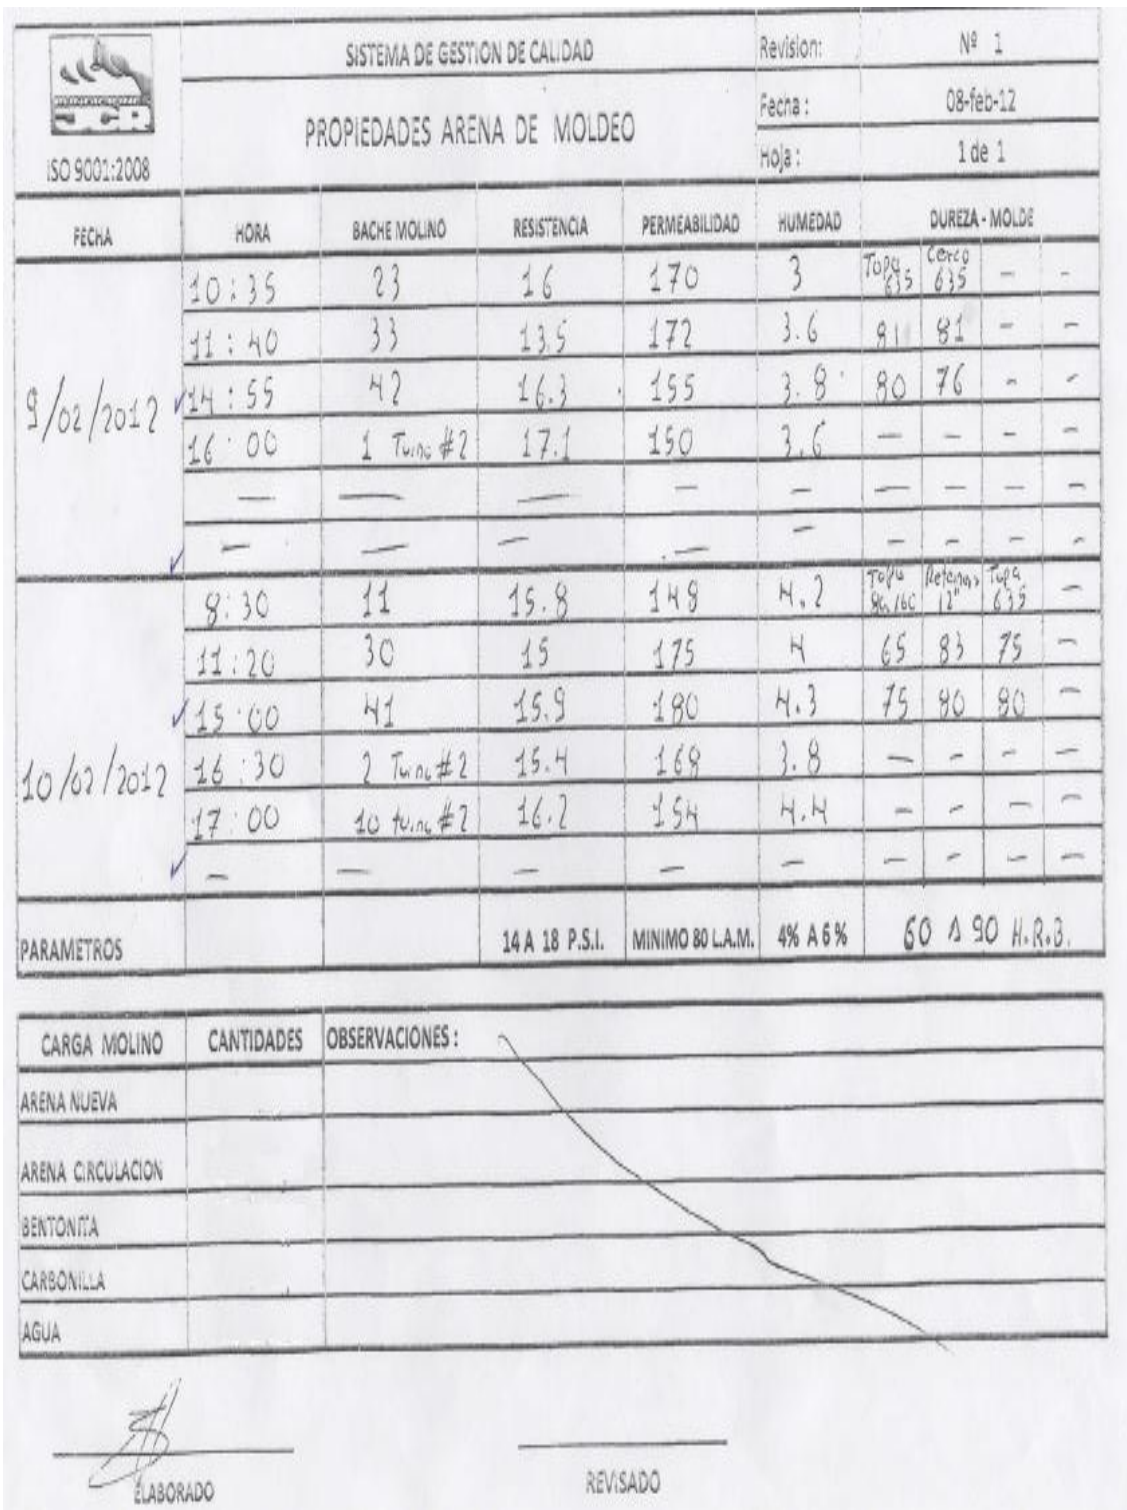 SISTEMA DE GESTION DE CALIDAD Revision: Nº 1
ISO 9001:2008 PROPIEDADES ARENA DE MOLDEO Fecha : 08-feb-12
Hoja : 1 de 1
FECHA HORA BACHE MOLINO RESISTENCIA PERMEABILIDAD HUMEDAD DUREZA - MOLDE
9/02/2012 10:35 23 16 170 3 Tapa 635 Cerco 635 - -
11:40 33 13.5 172 3.6 81 81 - -
14:55 42 16.3 155 3.8 80 76 - -
16:00 1 #2 17.1 150 3.6 - - - -
- - - - - - - - -
- - - - - - - - -
10/02/2012 8:30 11 15.8 148 4.2 Tapa 12" Tapa 635 -
11:20 30 15 175 4 65 83 75 -
15:00 41 15.9 180 4.3 75 80 80 -
16:30 2 #2 15.4 168 3.8 - - - -
17:00 10 #2 16.2 154 4.4 - - - -
- - - - - - - - -
PARAMETROS 14 A 18 P.S.I. MINIMO 80 L.A.M. 4% A 6 % 60 A 90 H.R.B.
CARGA MOLINO CANTIDADES OBSERVACIONES :
ARENA NUEVA
ARENA CIRCULACION
BENTONITA
CARBONILLA
AGUA
ELABORADO REVISADO